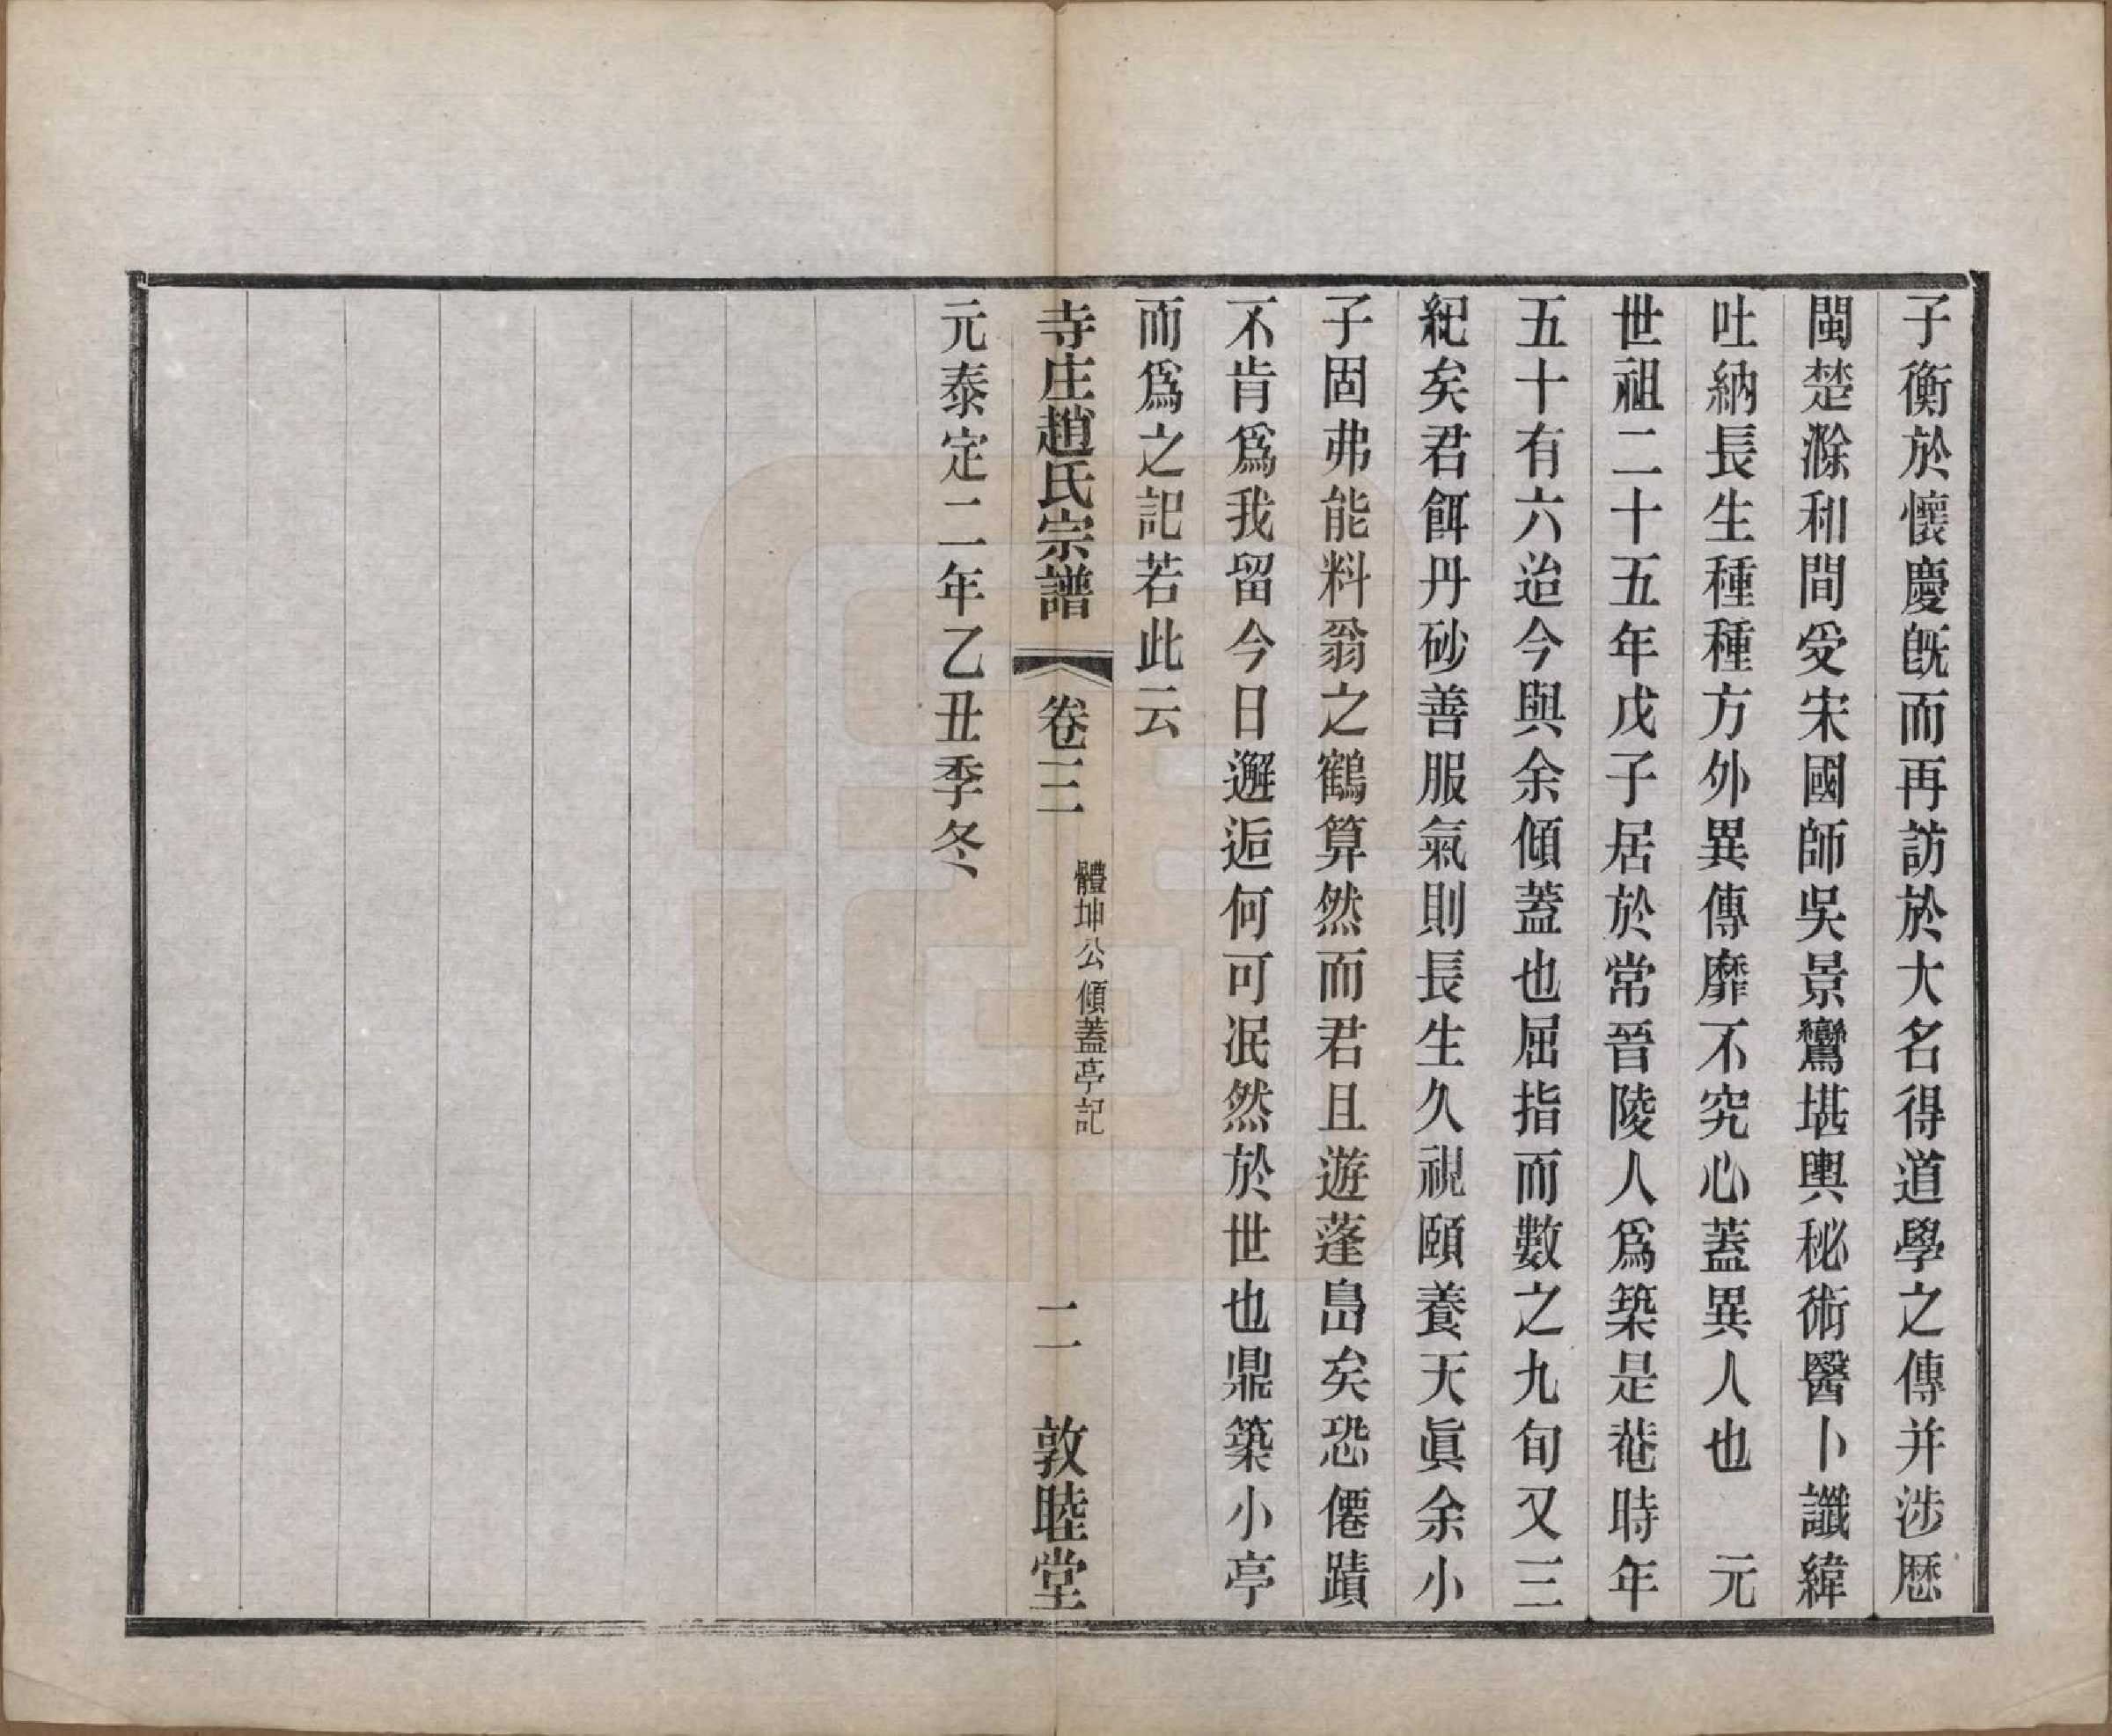 子衡於懷慶旣而再訪於大名得道學之傳并涉歷
閩楚滁和間受宋國師吳景鸞堪輿秘術醫卜讖緯
吐納長生種種方外異傳靡不究心蓋異人也　元
世祖二十五年戊子居於常晉陵人爲築是菴時年
五十有六迨今與余傾蓋也屈指而數之九旬又三
紀矣君餌丹砂善服氣則長生久視頤養天眞余小
子固弗能料翁之鶴算然而君且遊蓬島矣恐僊蹟
不肯爲我留今日邂逅何可泯然於世也鼎築小亭
而爲之記若此云
寺庄趙氏宗譜　卷三　體坤公傾蓋亭記　二　敦睦堂
元泰定二年乙丑季冬